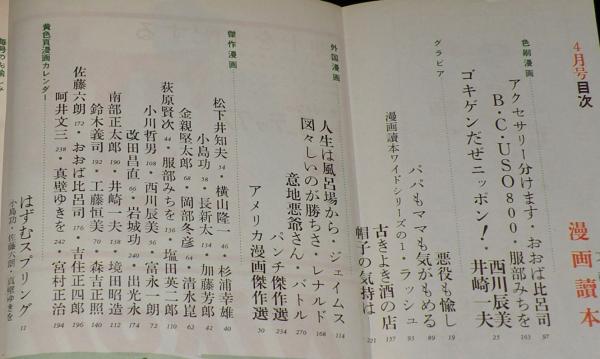 4月号目次
漫画讀本
色刷漫画
アクセサリー分けます・おおば比呂司 97
B・C・USO 800・服部みちを 103
ゴキゲンだぜニッポン!・井崎一夫
西川辰美 25
グラビア
悪役も愉し 19
パパもママも気がもめる 89
漫画読本ワイドシリーズの1・ラッシュ 93
古きよき酒の店 137
帽子の気持は 221
外国漫画
人生は風呂場から・ジェイムス 114
図々しいのが勝ちさ・レナルド 168
意地悪爺さん・バトル 270
パンチ傑作選 234
アメリカ漫画傑作選 50
傑作漫画
松下井知夫 34・横山隆一 46・杉浦幸雄 40
小島功 38・長新太 134・加藤芳郎 42
金親堅太郎 68・岡部冬彦 64・清水崑 62
荻原賢次 44・服部みちを 136・塩田英二郎 60
小川哲男 108・西川辰美 56・富永一朗 72
改田昌直 66・岩城功 240・出光永 74
南部正太郎 190・井崎一夫 138・境田昭造 112
鈴木義司 192・工藤恒美 70・森吉正照 140
佐藤六朗 172・おおば比呂司 176・吉住正四郎 196
呵井文三 238・真壁ゆきを 242・宮村正治 194
黄色頁漫画カレンダー
はずむスプリング 11
小島功・佐藤六朗・真壁ゆきを